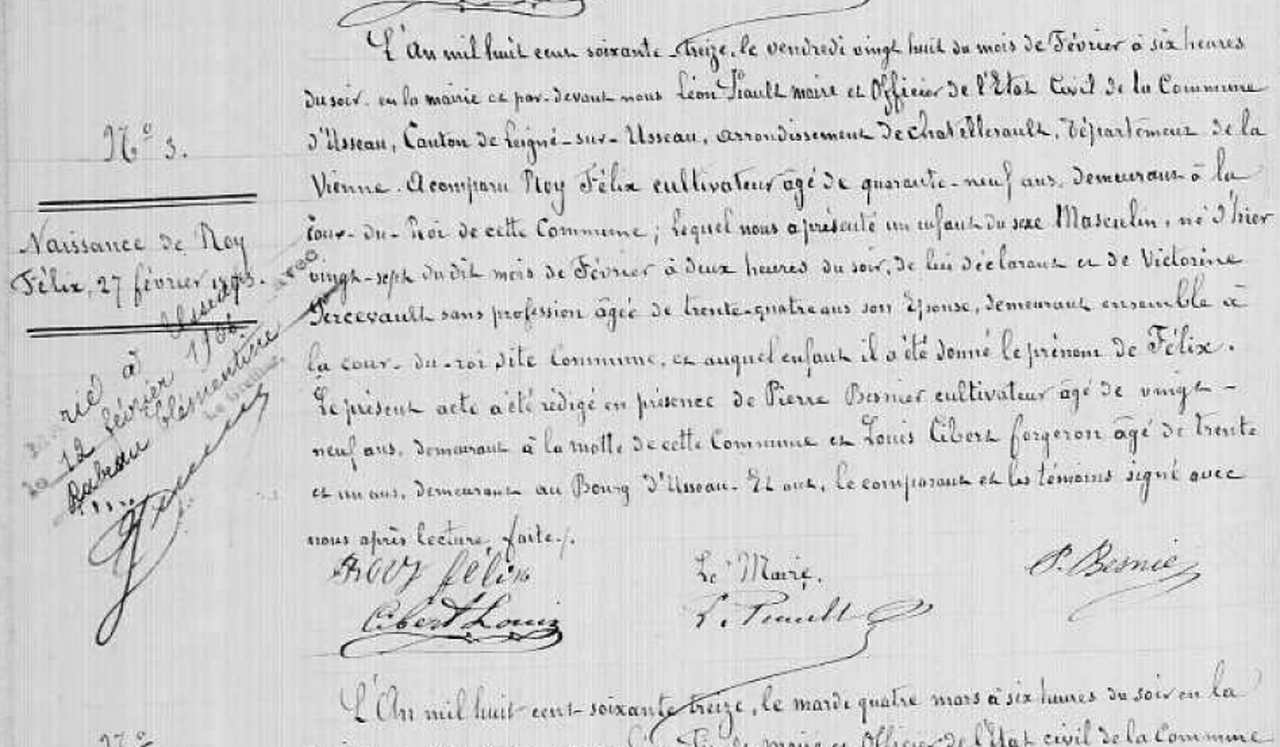 N° 3.
Naissance de Roy
Félix, 27 février 1873.
rié à
12 février
Rabeau Clémentine
L'An mil huit cent soixante-treize, le vendredi vingt huit du mois de Février à six heures
du soir. en la mairie et par-devant nous Léon Piault maire et Officier de l'Etat Civil de la Commune
d'Usseau, Canton de Leigné-sur-Usseau, arrondissement de chatellerault, Département de la
Vienne. A comparu Roy Félix cultivateur âgé de quarante-neuf ans, demeurant à la
Cour-du-Roi de cette Commune; lequel nous a présenté un enfant du sexe Masculin, né d'hier
vingt-sept du dit mois de Février à deux heures du soir, de lui déclarant et de Victorine
Percevault sans profession âgée de trente-quatre ans son Epouse, demeurant ensemble à
la cour-du-roi dite Commune, et auquel enfant il a été donné le prénom de Félix.
Le présent acte a été rédigé en présence de Pierre Besnier cultivateur âgé de vingt-
neuf ans, demeurant à la motte de cette Commune et Louis Cibert forgeron âgé de trente
et un ans, demeurant au Bourg d'Usseau. Et ont, le comparant et les témoins signé avec
nous après lecture faite./.
Roy félix
Le Maire,
P. Besnie
Cibert Louis
L. Piault
L'An mil huit-cent-soixante treize, le mardi quatre mars à six heures du soir en la
maire et Officier de l'Etat civil de la Commune
N°